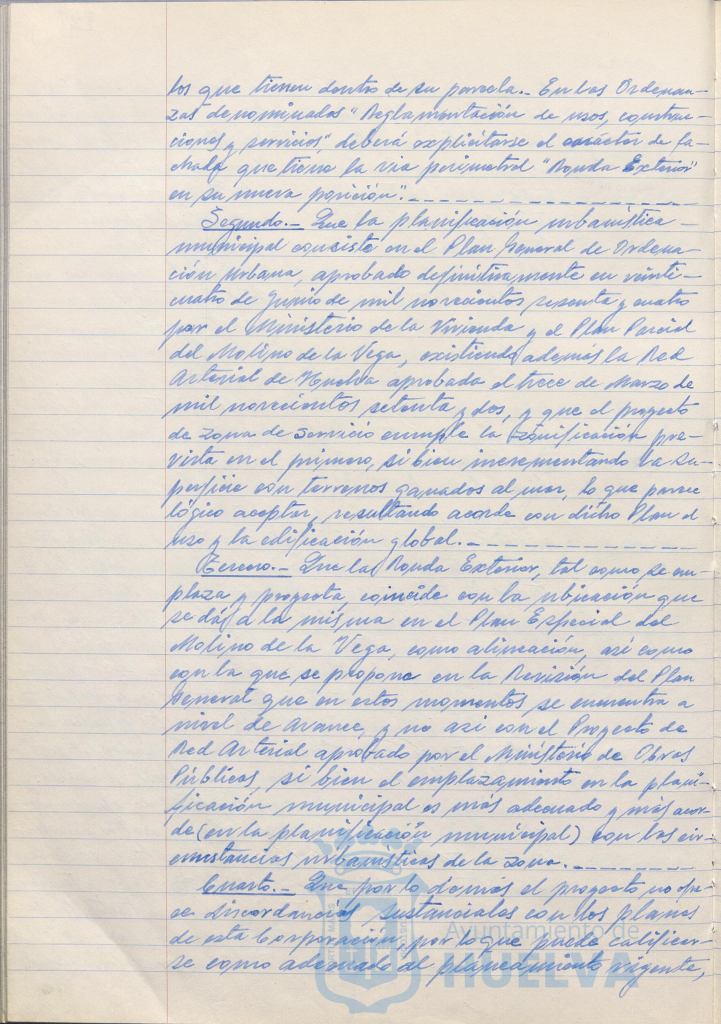 tos que tienen dentro de su parcela.- En las Ordenan-
zas denominadas "Reglamentación de usos, construc-
ciones y servicios", deberá explicitarse el carácter de fa-
chada que tiene la vía perimetral "Ronda Exterior"
en su nueva posición".-
Segundo.- Que la planificación urbanística
municipal consiste en el Plan General de Ordena-
ción Urbana, aprobado definitivamente en veinti-
cuatro de Junio de mil novecientos sesenta y cuatro
por el Ministerio de la Vivienda y el Plan Parcial
del Molino de la Vega, existiendo además la Red
Arterial de Huelva aprobada el trece de Marzo de
mil novecientos setenta y dos, y que el proyecto
de zona de servicio cumple la zonificación pre-
vista en el primero, si bien incrementando la su-
perficie con terrenos ganados al mar, lo que parece
lógico aceptar, resultando acorde con dicho Plan el
uso y la edificación global.-
Tercero.- Que la Ronda Exterior, tal como se em-
plaza y proyecta, coincide con la ubicación que
se dá a la misma en el Plan Especial del
Molino de la Vega, como alineación, así como
con la que se propone en la Revisión del Plan
General que en estos momentos se encuentra a
nivel de Avance, y no así con el Proyecto de
Red Arterial aprobado por el Ministerio de Obras
Públicas, si bien el emplazamiento en la plani-
ficación municipal es más adecuado y más acor-
de (en la planificación municipal) con las cir-
cunstancias urbanísticas de la zona.-
Cuarto.- Que por lo demás el proyecto no ofre-
ce discordancias sustanciales con los planes
de esta Corporación, por lo que puede calificar-
se como adecuado al planeamiento vigente,
Ayuntamiento de
HUELVA